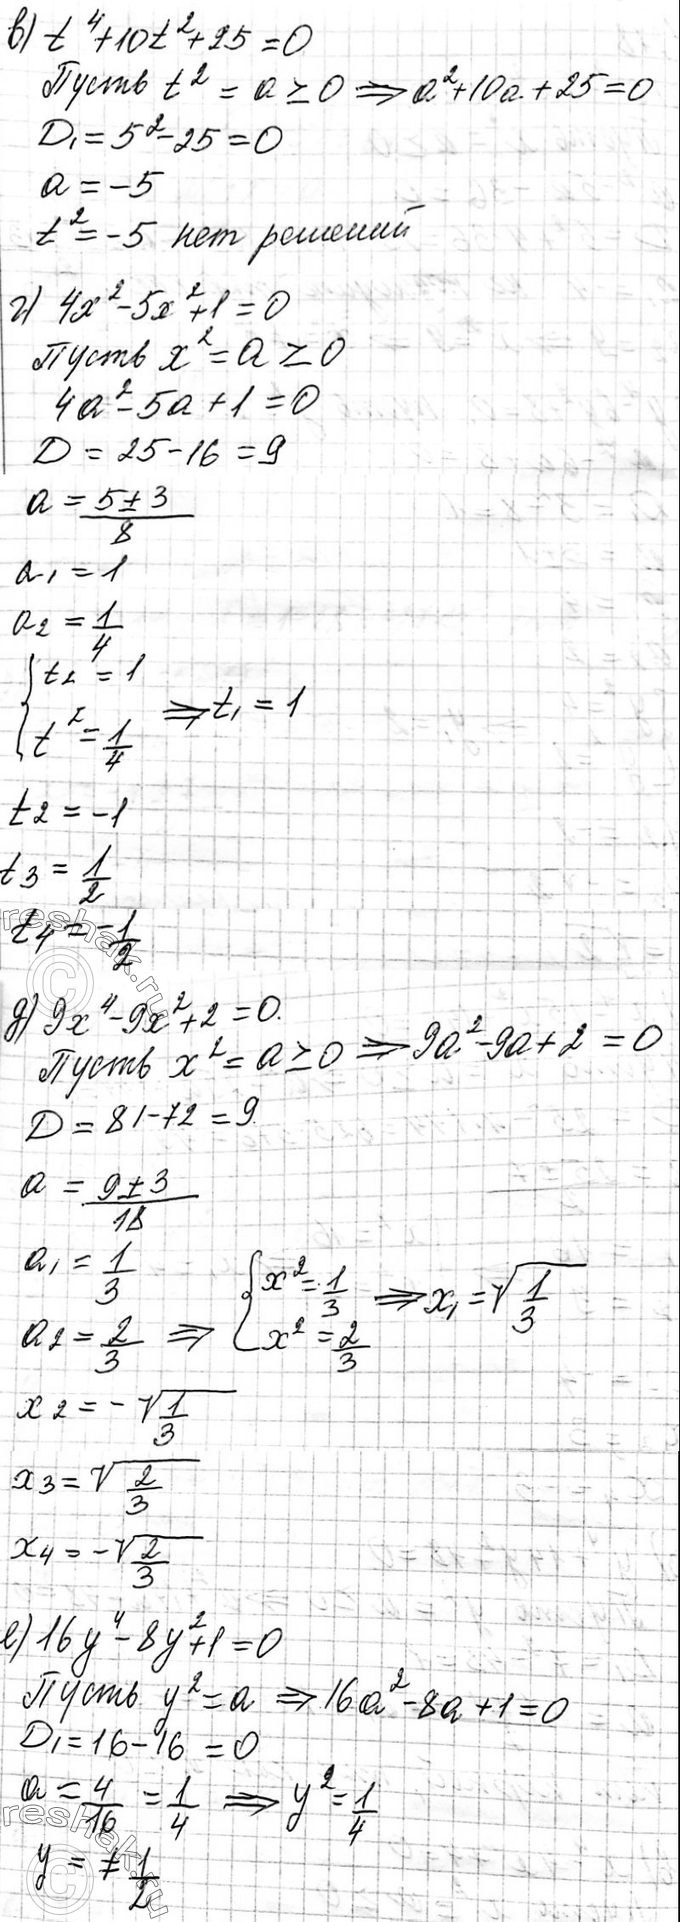 в) t⁴+10t²+25=0
Пусть t² = a ≥ 0 ⇒ a²+10a+25=0
D₁=5²-25=0
a=-5
t²=-5 нет решений
г) 4x²-5x²+1=0
Пусть x²=a≥0
4a²-5a+1=0
D=25-16=9
a=(5±3)/8
a₁=1
a₂=1/4
{t₂=1
t²=1/4 ⇒ t₁=1
t₂=-1
t₃=1/2
t₄=-1/2
reshak.ru
д) 9x⁴-9x²+2=0
Пусть x²=a≥0 ⇒ 9a²-9a+2=0
D=81-72=9
a=(9±3)/18
a₁=1/3
a₂=2/3 ⇒ {x²=1/3 x²=2/3 ⇒ x₁=√(1/3)
x₂=-√(1/3)
x₃=√(2/3)
x₄=-√(2/3)
е) 16y⁴-8y²+1=0
Пусть y²=a ⇒ 16a²-8a+1=0
D₁=16-16=0
a=4/16=1/4 ⇒ y²=1/4
reshak.ru
y=±1/2